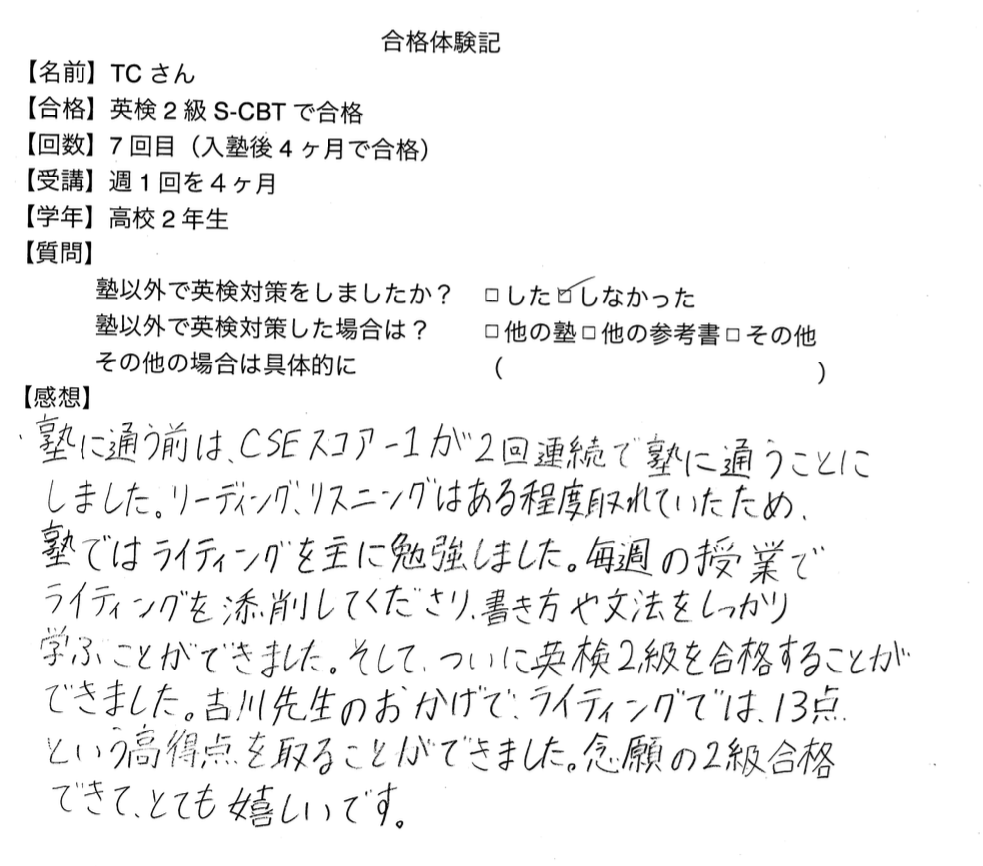 合格体験記
【名前】TCさん
【合格】英検2級S-CBTで合格
【回数】7回目（入塾後4ヶ月で合格）
【受講】週1回を4ヶ月
【学年】高校2年生
【質問】
塾以外で英検対策をしましたか？ □した☑しなかった
塾以外で英検対策した場合は？ □他の塾□他の参考書□その他
その他の場合は具体的に （ ）
【感想】
塾に通う前は、CSEスコアー1が2回連続で塾に通うことに
しました。リーディング、リスニングはある程度取れていたため、
塾ではライティングを主に勉強しました。毎週の授業で
ライティングを添削してくださり、書き方や文法をしっかり
学ぶことができました。そして、ついに英検2級を合格することが
できました。吉川先生のおかげで、ライティングでは、13点
という高得点を取ることができました。念願の2級合格
できて、とても嬉しいです。